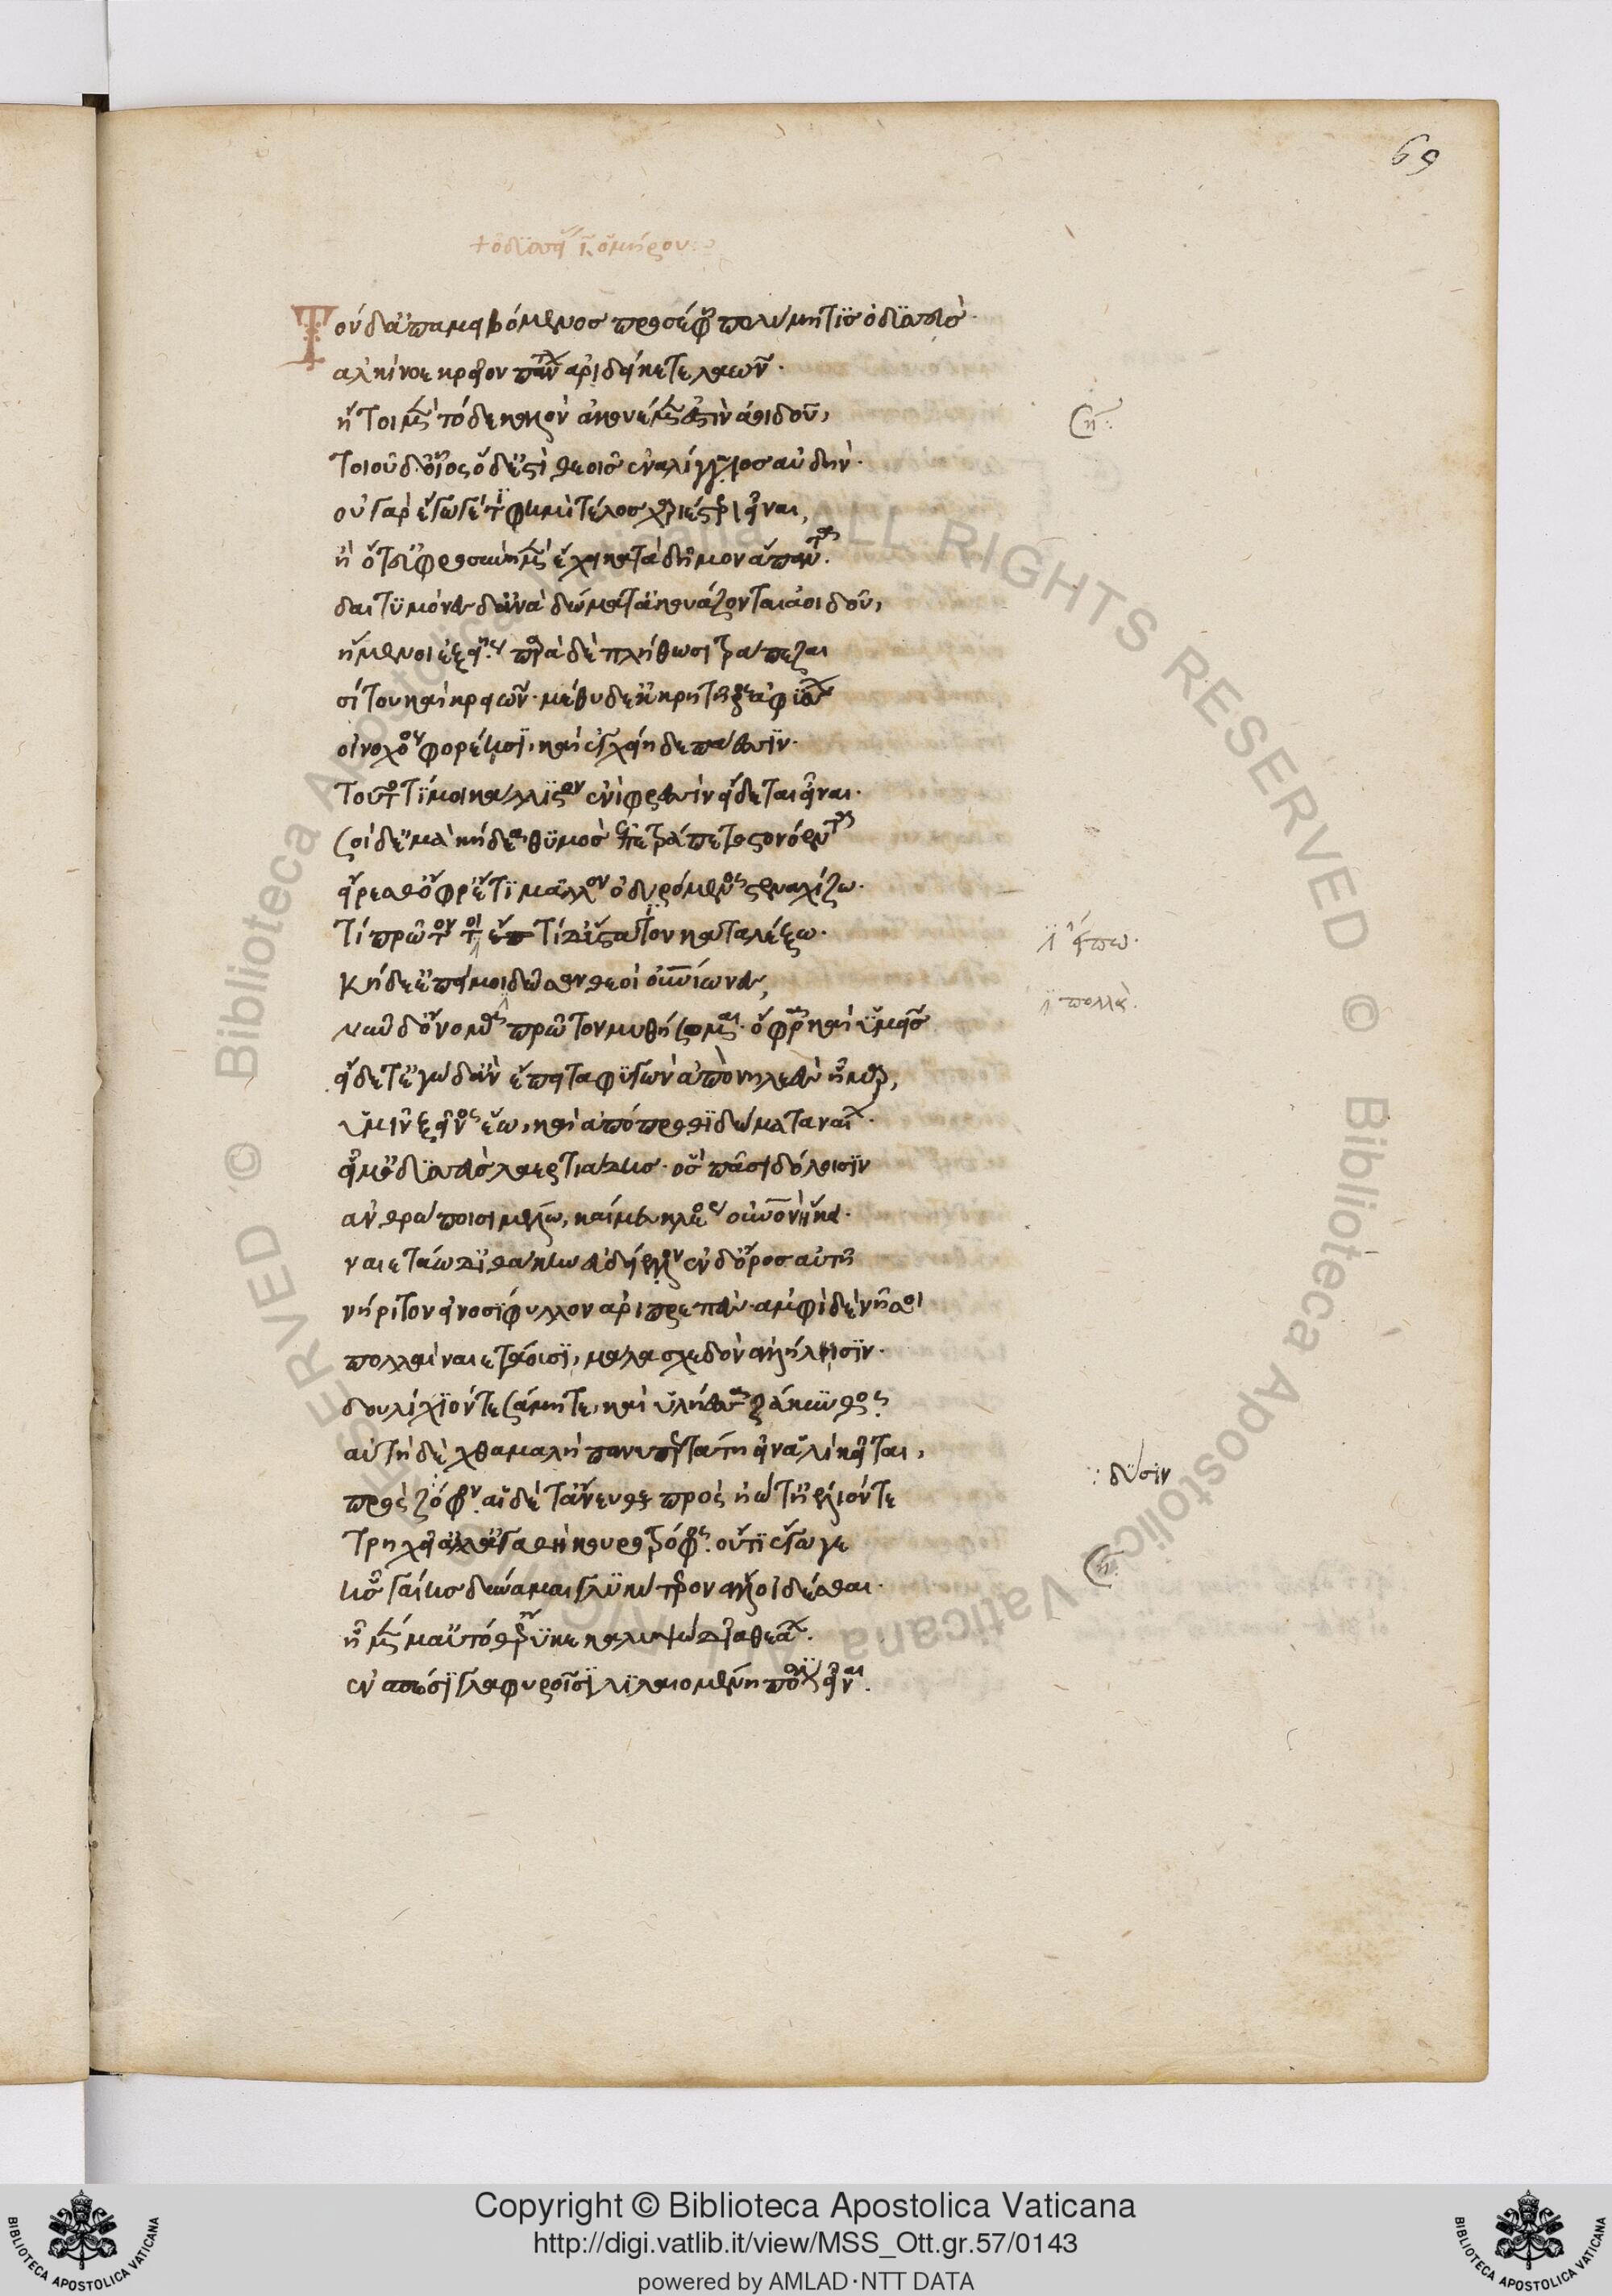 69
+ ὀδϋσσεί ι ὁμήρου
Τὸν δ' ἀπαμειβόμενος προσέφη πολύμητις ὀδυσσεύς·
αλκίνοε κρεῖον πάντων αριδείκετε λαων·
ἤτοι μὲν τόδε καλὸν ἀκουέμεν ἐστὶν ἀοιδοῦ,
τοιοῦδ' οἷος ὅδ' ἐστὶ θεοῖς ἐναλίγγκιος αὐδήν·
οὐ γὰρ ἔγωγέ τί φημι τέλος χαριέστερον εἶναι,
ἢ ὅτ' εὐφροσύνη μὲν ἔχει κατὰ δῆμον ἅπαντα·
δαιτυμόνες δ' ἀνὰ δώματ' ἀκουάζονται ἀοιδοῦ,
ἥμενοι ἑξείης· παρὰ δὲ πλήθωσι τράπεζαι
σίτου καὶ κρειῶν· μέθυ δ' ἐκ κρητῆρος ἀφύσσων
οἰνοχόος φορέησι, καὶ ἐγχείη δεπάεσσιν·
τοῦτό τί μοι κάλλιστον ἐνὶ φρεσὶν εἴδεται εἶναι·
σοὶ δ' ἐμὰ κήδεα θυμὸς ἐπετράπετο στονόεντα
εἴρεσθ' ὄφρ' ἔτι μᾶλλον ὀδυρόμενος στεναχίζω·
τί πρῶτον τοι ἔπ τί δ' ὑστάτιον καταλέξω·
κήδε' ἐπεί μοι δῶσαν θεοὶ οὐνίωνες,
νῦν δ' ὄνομα πρῶτον μυθήσομαι· ὄφρα καὶ ὑμεῖς
εἴδετ' ἐγὼ δ' ἂν ἔπειτα φυγὼν ἀπὸ νηλεὲς ἦμαρ,
ὑμῖν ξεῖνος ἔω, καὶ ἀπόπροθι δώματα ναίων·
εἴμ' ὀδυσσεὺς λαερτιάδης· ὃς πᾶσι δόλοισιν
ἀνθρώποισι μέλω, καί μευ κλέος οὐνὸν ἥκει·
ναιετάω δ' ἰθάκην εὐδείελον ἐν δ' ὄρος αὐτῆ
νήριτον εἰνοσίφυλλον ἀριπρεπές· ἀμφὶ δὲ νῆσοι
πολλαὶ ναιετάουσι, μάλα σχεδὸν ἀλλήλησιν·
δουλίχιόν τε σάμη τε, καὶ ὑλήεσσα ζάκυνθος·
αὐτὴ δὲ χθαμαλὴ πανυπερτάτη εἰν ἁλὶ κεῖται,
πρὸς ζόφον· αἱ δέ τ' ἄνευθε πρὸς ἠῶ τ' ἠέλιόν τε
τρηχεῖ' ἀλλ' ἀγαθὴ κουροτρόφος· οὔτι ἔγωγε
ἧς γαίης δύναμαι γλυκύτερον ἄλλο ἰδέσθαι·
ἦ μέν μ' αὐτόθ' ἔρυκε καλυψὼ δῖα θεάων·
ἐν σπέσσι γλαφυροῖσι λιλαιομένη πόσιν εἶναι.
δύσιν
πολλὰ
Copyright © Biblioteca Apostolica Vaticana
http://digi.vatlib.it/view/MSS_Ott.gr.57/0143
powered by AMLAD·NTT DATA